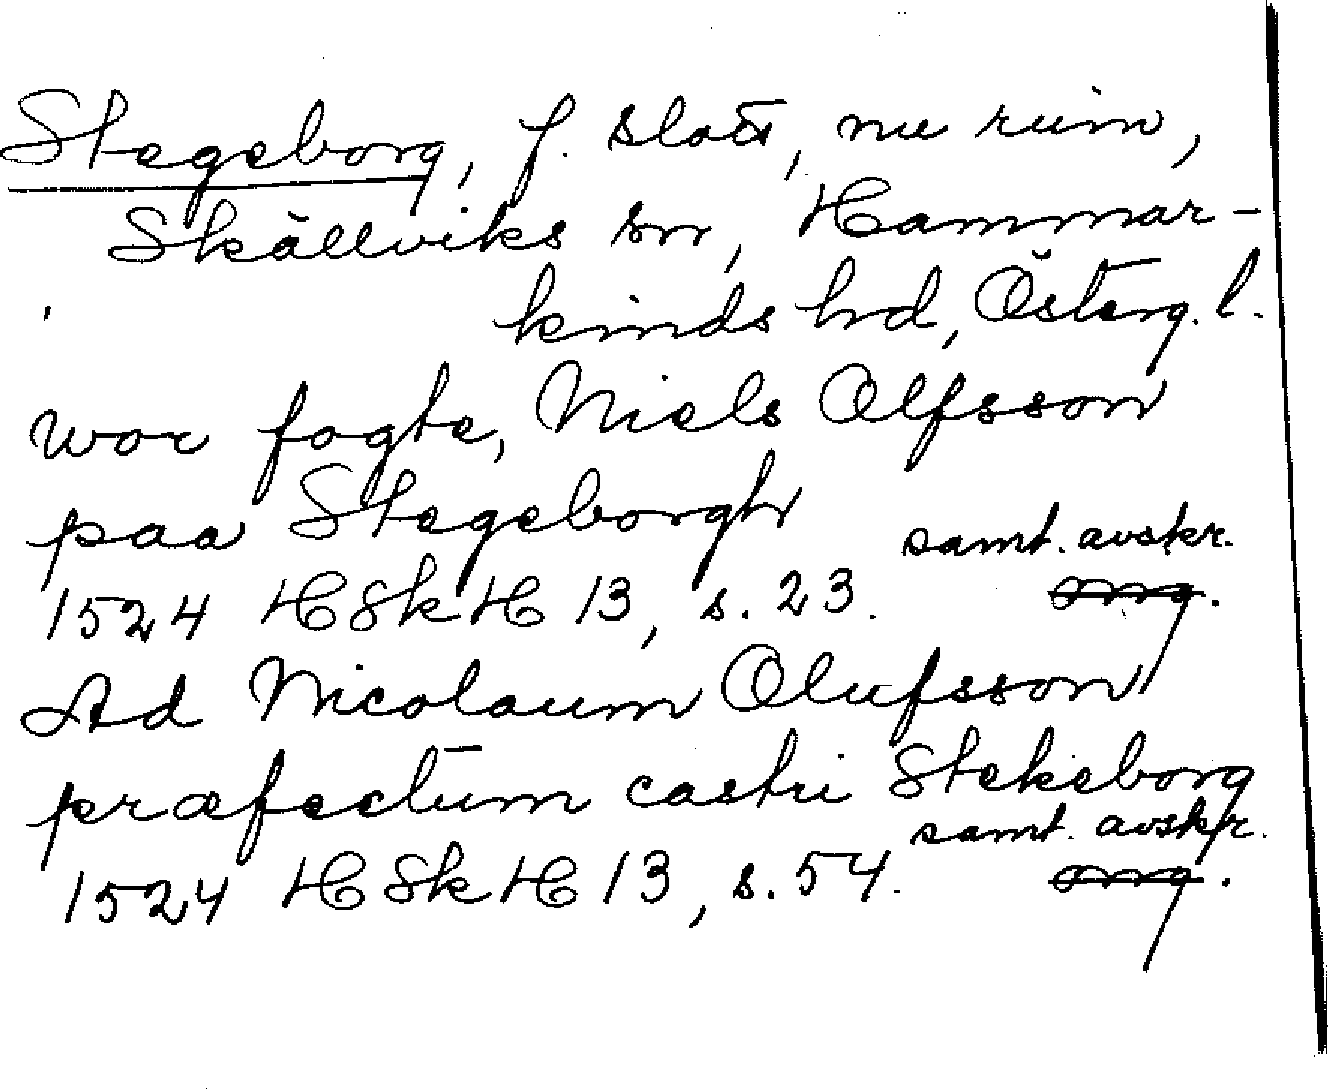 Stegeborg, f. slott, nu ruin,
Skällviks sn, Hammar-
kinds hd, Österg. l.
wor fogte, Niels Olfsson
paa Stegeborgh
samt. avskr.
1524 HSkH 13, s. 23. org.
Ad Nicolaum Olufsson
præfectum castri Stekeborg
samt. avskr.
1524 HSkH 13, s. 54. org.